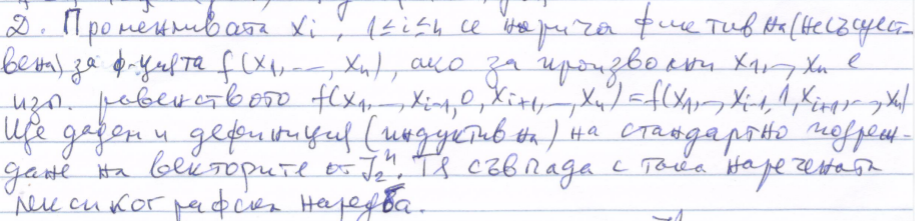 Д. Променливата xi, 1≤i≤n се нарича фиктивна (несъщест-
вена) за ф-цията f(x1,...,xn), ако за произволни x1,..,xn е
изп. равенството f(x1,..,xi-1,0,xi+1,..,xn)=f(x1,..,xi-1,1,xi+1,..,xn)
Ще дадем и дефиниция (индуктивна) на стандартно подреж-
дане на векторите от J₂ⁿ. Тя съвпада с така наречената
лексикографска наредба.